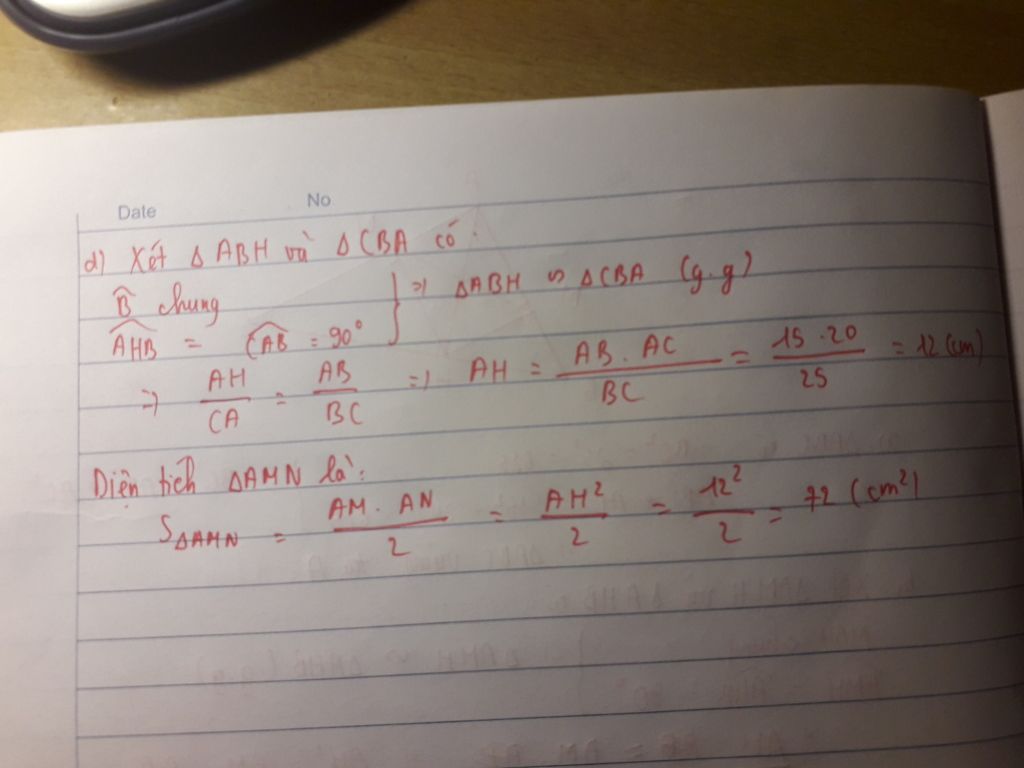 Date No
d) Xét Δ ABH và Δ CBA có:
B̂ chung } => ΔABH ∽ ΔCBA (g.g)
AHB = CAB = 90°
=> AH/CA = AB/BC => AH = AB . AC/BC = 15 . 20/25 = 12 (cm)
Diện tích ΔAMN là:
SΔAMN = AM . AN/2 = AH²/2 = 12²/2 = 72 (cm²)